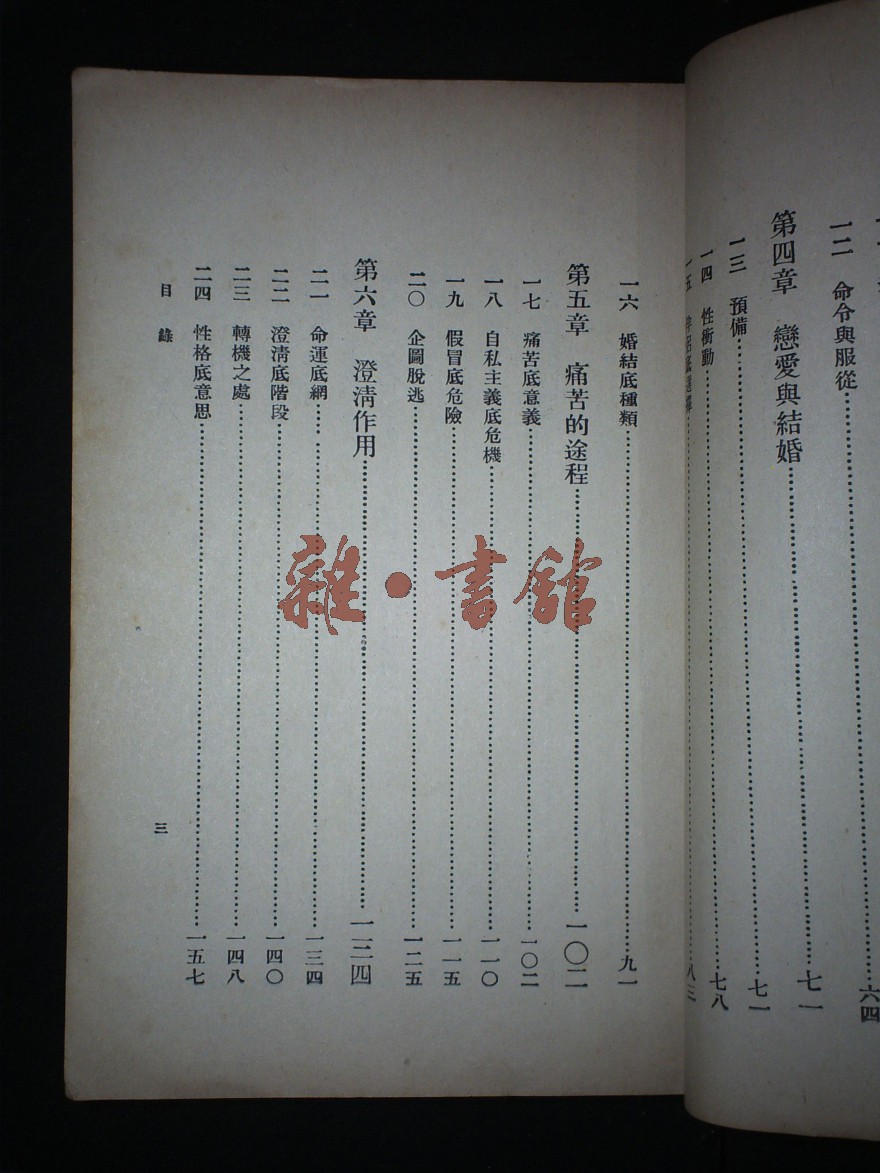 一二　命令與服從……六四
第四章　戀愛與結婚……七一
一三　預備……七一
一四　性衝動……七八
一五　……八三
一六　婚結底種類……九一
第五章　痛苦的途程……一〇二
一七　痛苦底意義……一〇二
一八　自私主義底危機……一一〇
一九　假冒底危險……一一五
二〇　企圖脫逃……一二五
第六章　澄淸作用……一三四
二一　命運底網……一三四
二二　澄淸底階段……一四〇
二三　轉機之處……一四八
二四　性格底意思……一五七
目錄
三
雜·書館